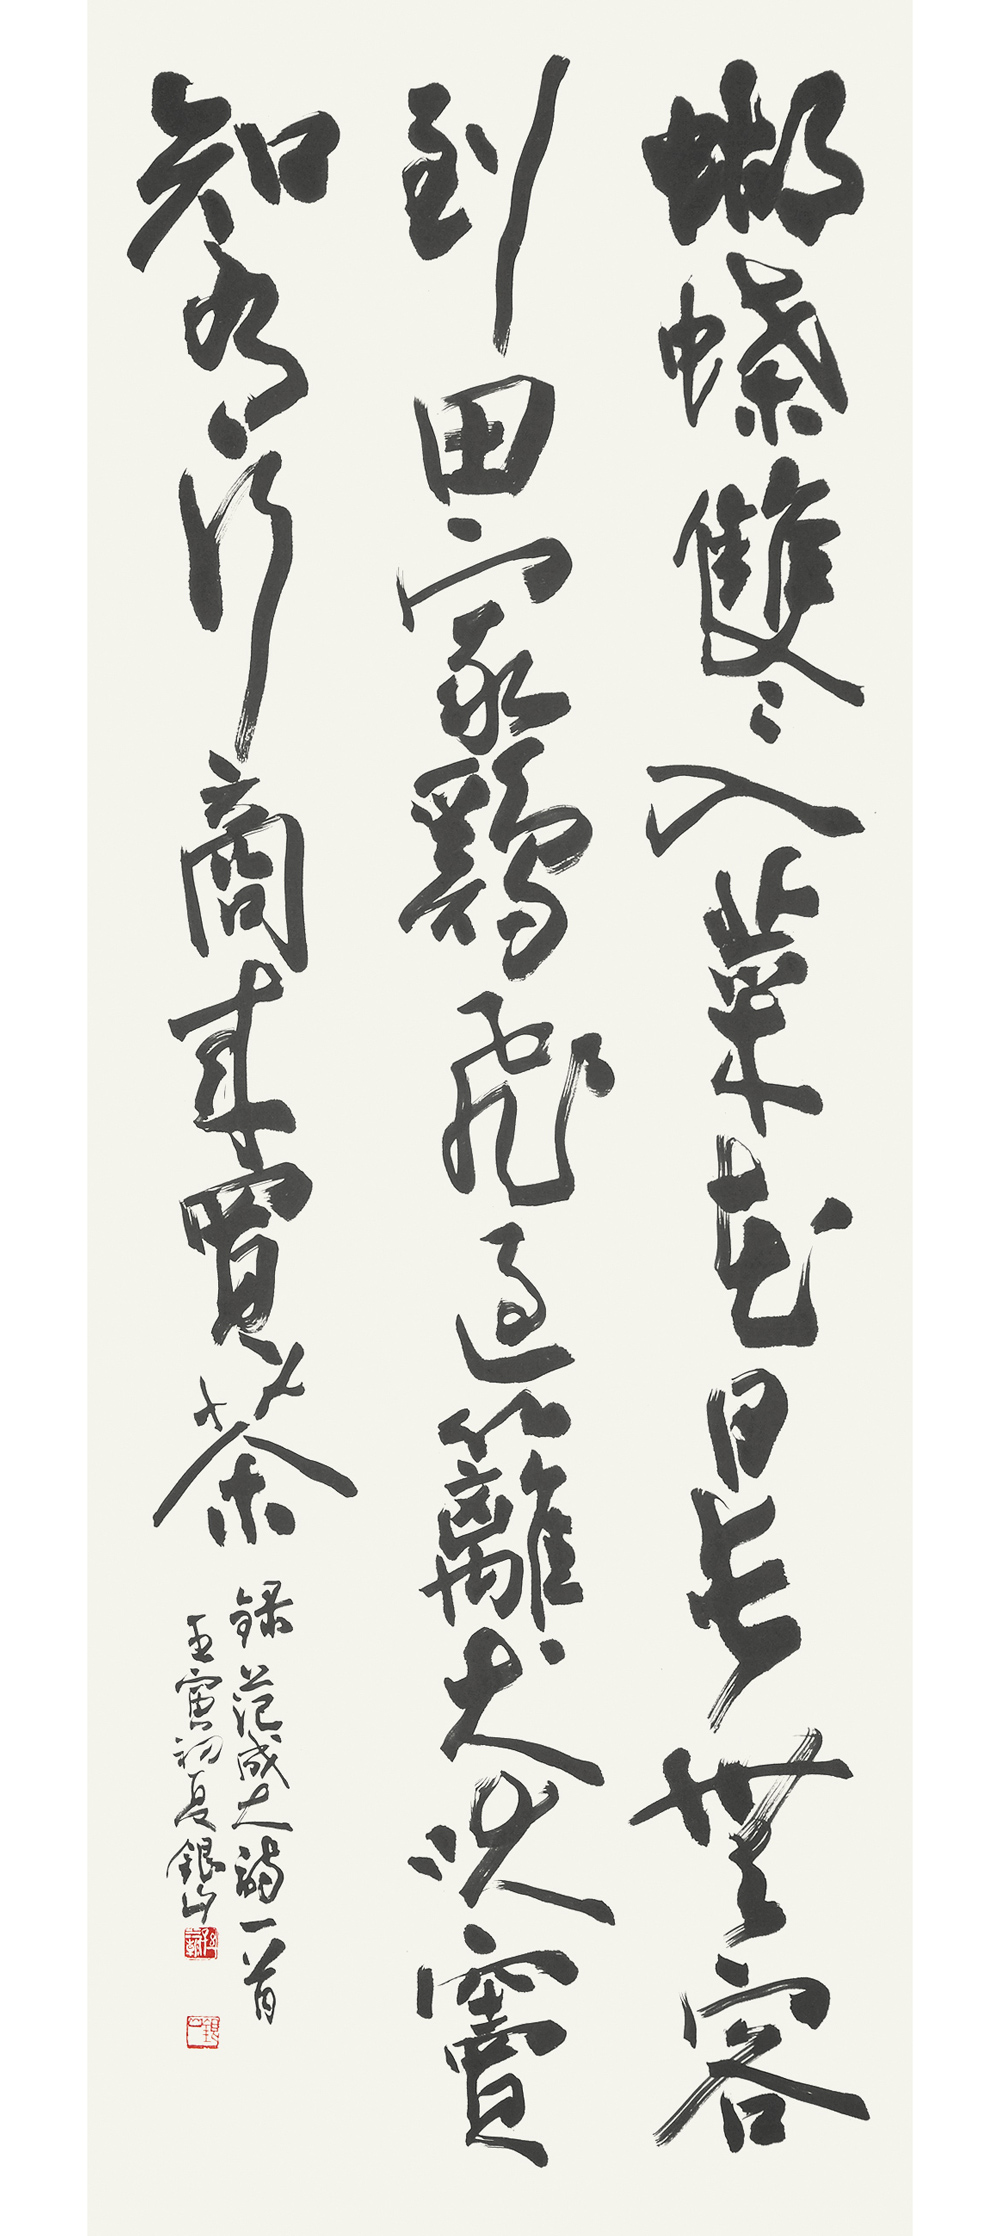 蝴蝶雙雙入菜花日長無客
到田家鷄飛過籬犬吠竇
知有行商來買茶
錄范成大詩一首
壬寅初夏銀山